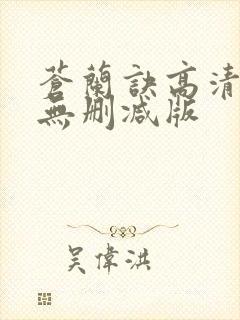 蒼蘭訣高清
無刪減版
吳偉洪